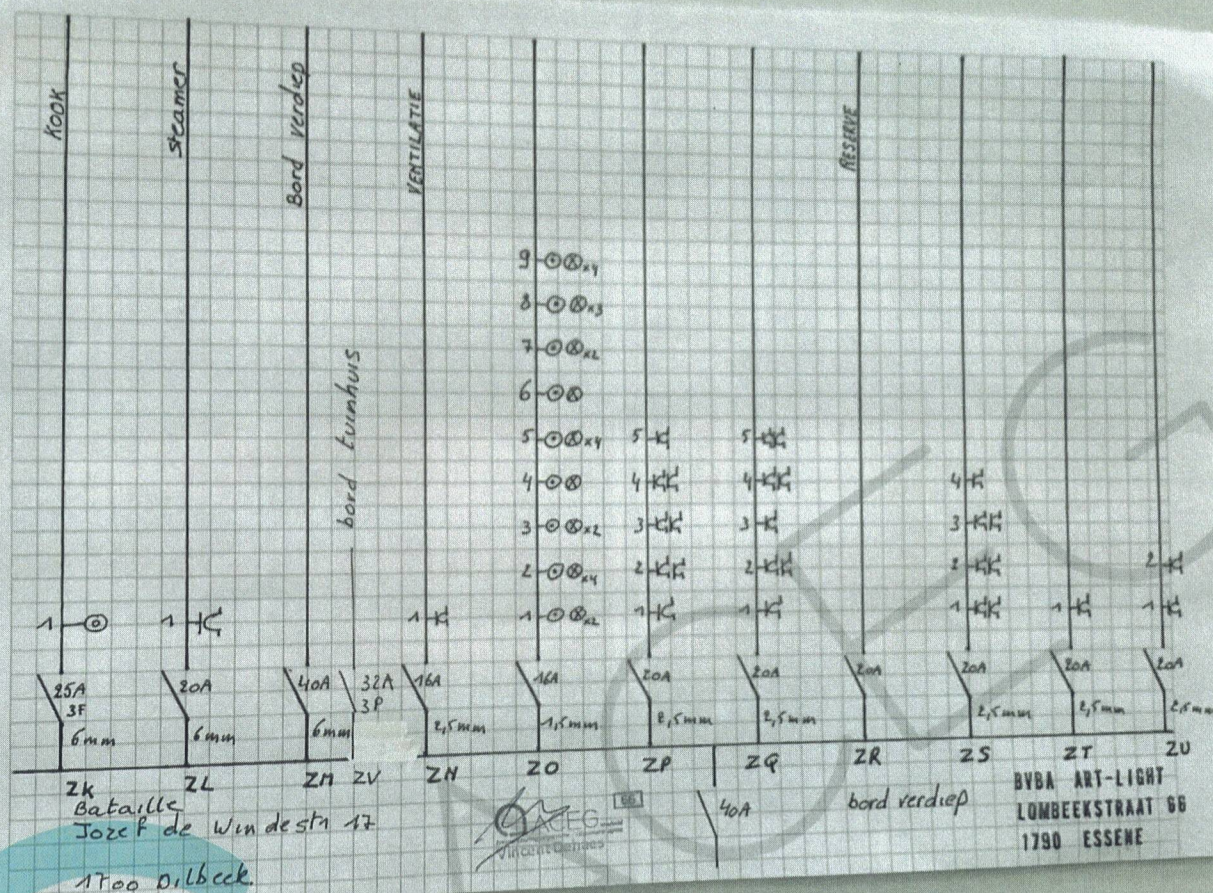 KOOK
steamer
Bord verdiep
bord tuinhuis
VENTILATIE
RESERVE
9 x4
8 x3
7 x2
6
5 x4
4
3 x2
2 x4
1 x2
5
4
3
2
1
5
4
3
2
1
4
3
2
1
1
2
1
1
1
1
25A
3F
6mm
20A
6mm
40A
6mm
32A
3P
16A
2,5mm
16A
1,5mm
20A
2,5mm
20A
2,5mm
20A
20A
2,5mm
20A
2,5mm
20A
2,5mm
ZK
ZL
ZM
ZV
ZN
ZO
ZP
ZQ
ZR
ZS
ZT
ZU
Bataille
Jozef de Windestr 17
1700 Dilbeek.
ACEG
66
40A
bord verdiep
BVBA ART-LIGHT
LOMBEEKSTRAAT 66
1790 ESSENE